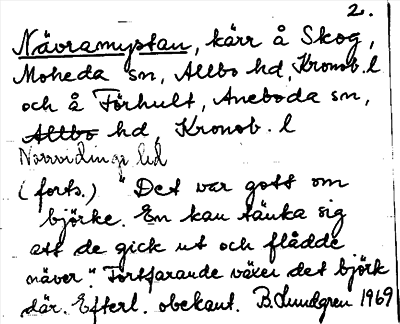 2.
Nävramystan, kärr å Skog,
Moheda sn, Allbo hd, Kronob. l
och å Förhult, Aneboda sn,
Allbo hd, Kronob. l
Norrvidinge hd
(forts.) "Det var gott om
björke. En kan tänka sig
att de gick ut och flådde
näver." Fortfarande växer det björk
där. Efterl. obekant. B. Lundgren 1969